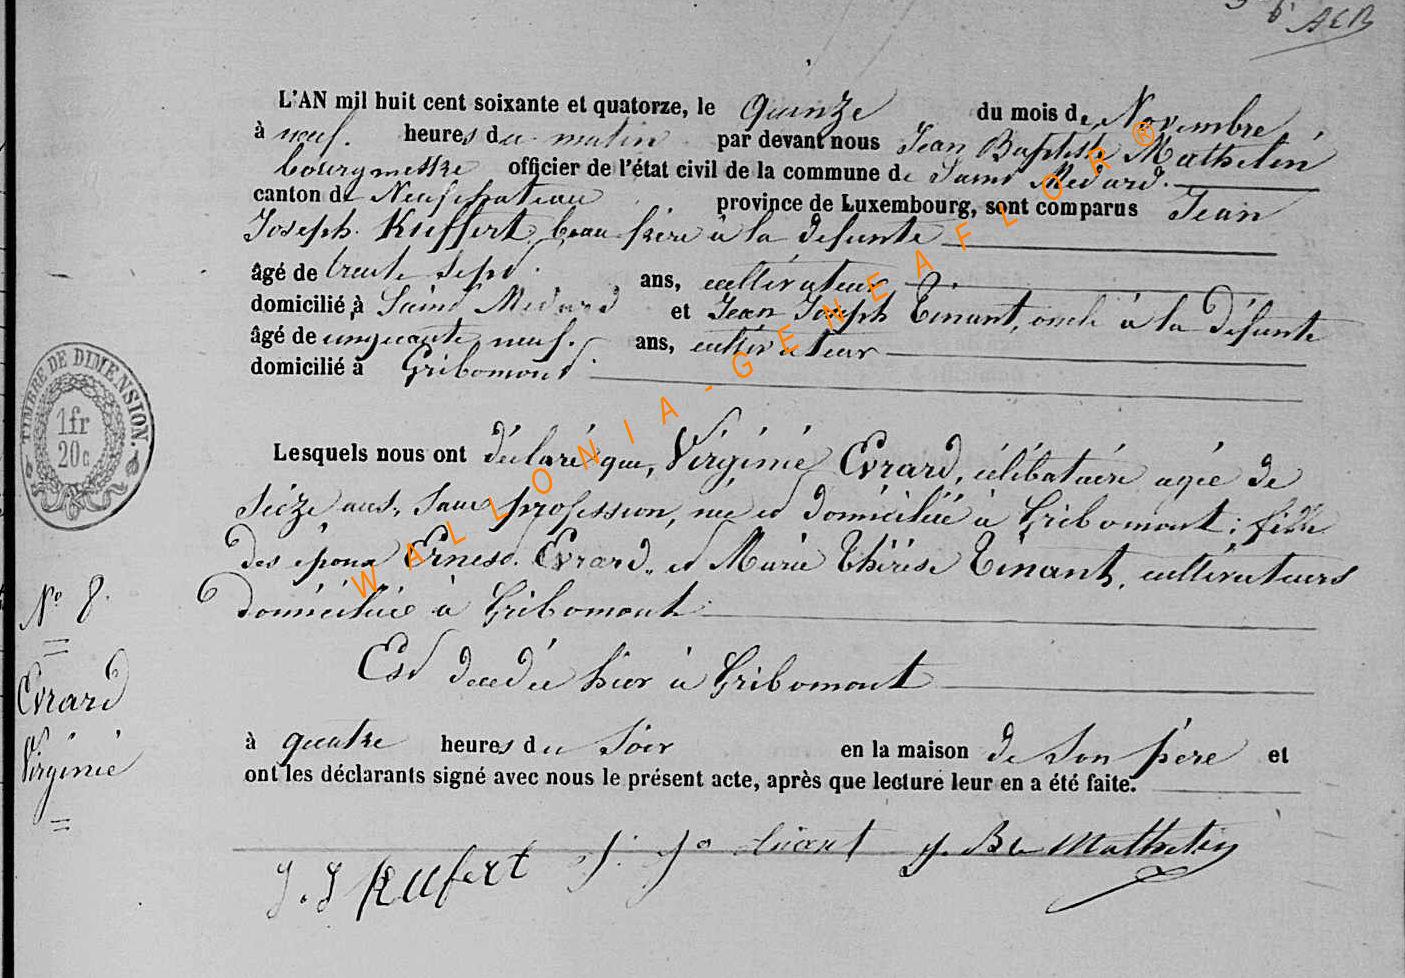 AEB
L'AN mil huit cent soixante et quatorze, le quinze du mois de Novembre,
à neuf. heures du matin par devant nous Jean Baptiste Mathelin
bourgmestre officier de l'état civil de la commune de Saint Médard.
canton de Neufchateau province de Luxembourg, sont comparus Jean
Joseph Kuffert, beau frère à la défunte
âgé de trente sept ans, cultivateur
domicilié à Saint Médard et Jean Joseph Tinant, oncle à la défunte
âgé de cinquante neuf. ans, cultivateur
domicilié à Gribomont
TIMBRE DE DIMENSION.
1fr
20c
Lesquels nous ont déclaré que, Virginie Evrard, célibataire agée de
seize ans, sans profession, née et domiciliée à Gribomont; fille
des époux Ernest Evrard, et Marie Thérèse Tinant, cultivateurs
domiciliés à Gribomont
Est décédée hier à Gribomont
à quatre heures du soir en la maison de son père et
ont les déclarants signé avec nous le présent acte, après que lecture leur en a été faite.
N° 8.
Evrard
Virginie
J. J Kufert J. Jh tinant J. Bte Mathelin
WALLONIA-GENEAFLOR®